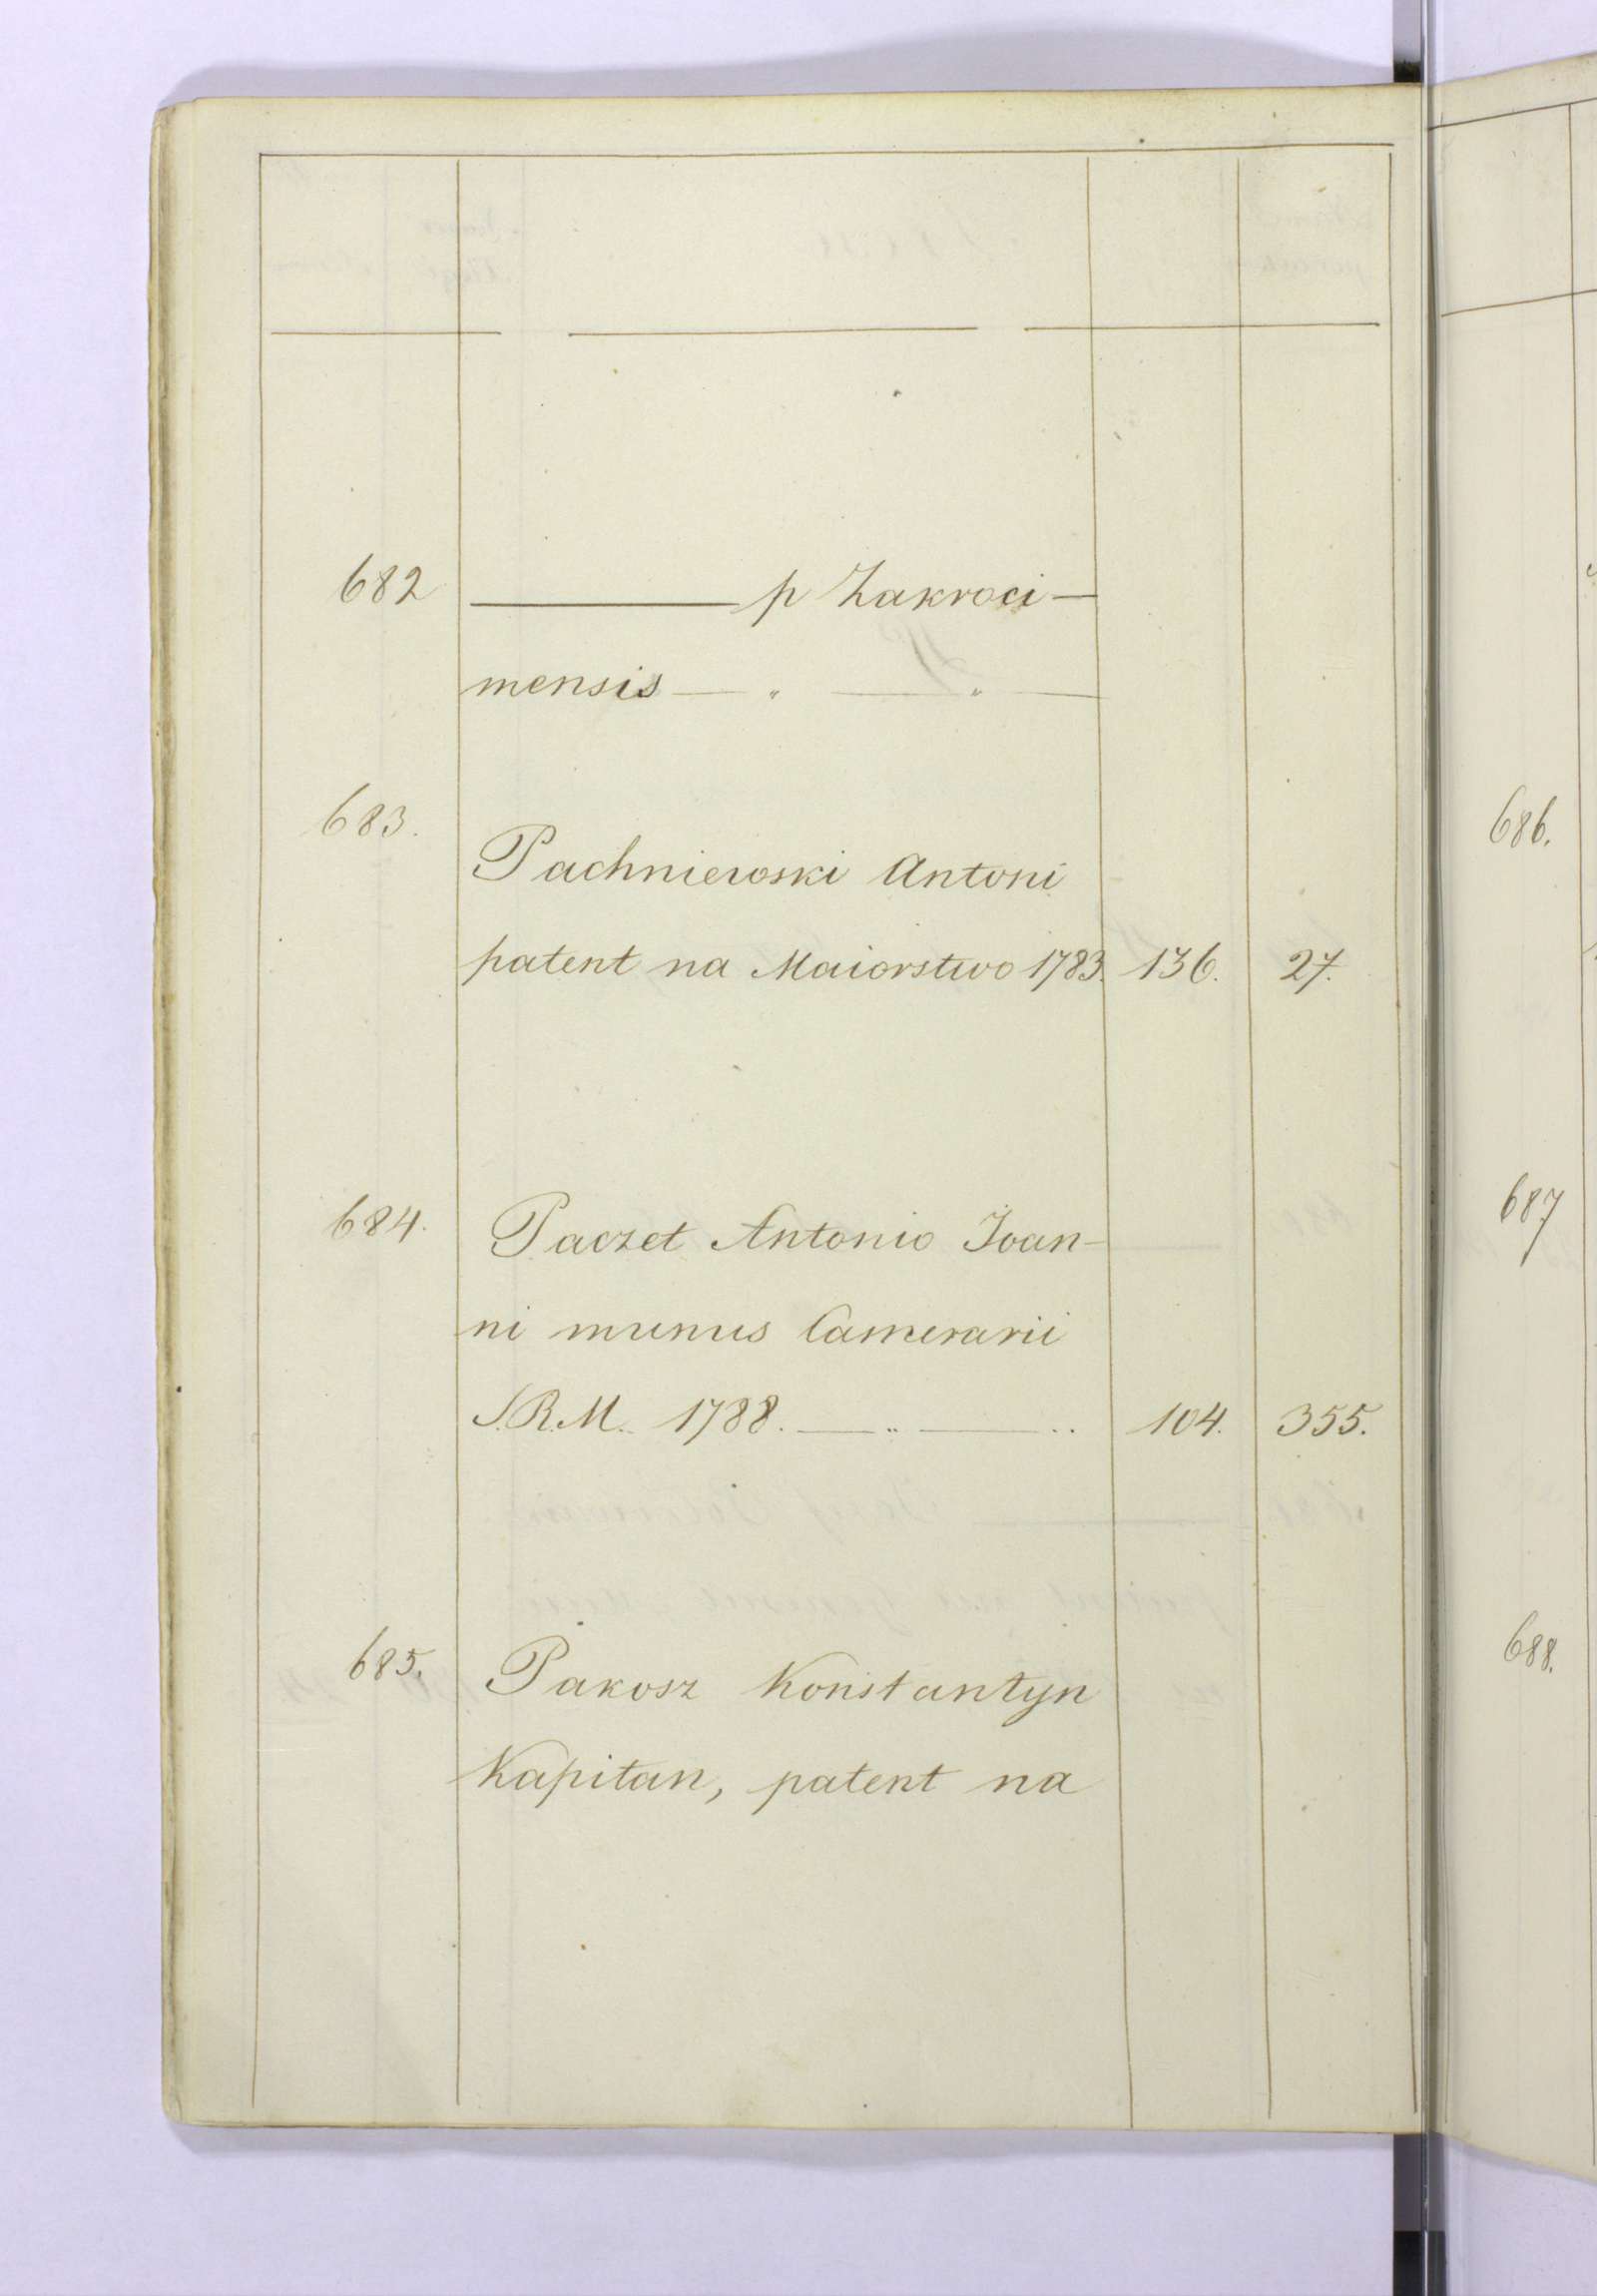 682 — p Zakroci-
mensis — " — " —
683.
Pachniewski Antoni
patent na Maiorstwo 1783. 136. 27.
684. Paczet Antonio Joan-
ni munus Camerarii
S.R.M. 1788. — " — .. 104. 355.
685. Pakosz Konstantyn
Kapitan, patent na
686.
687
688.